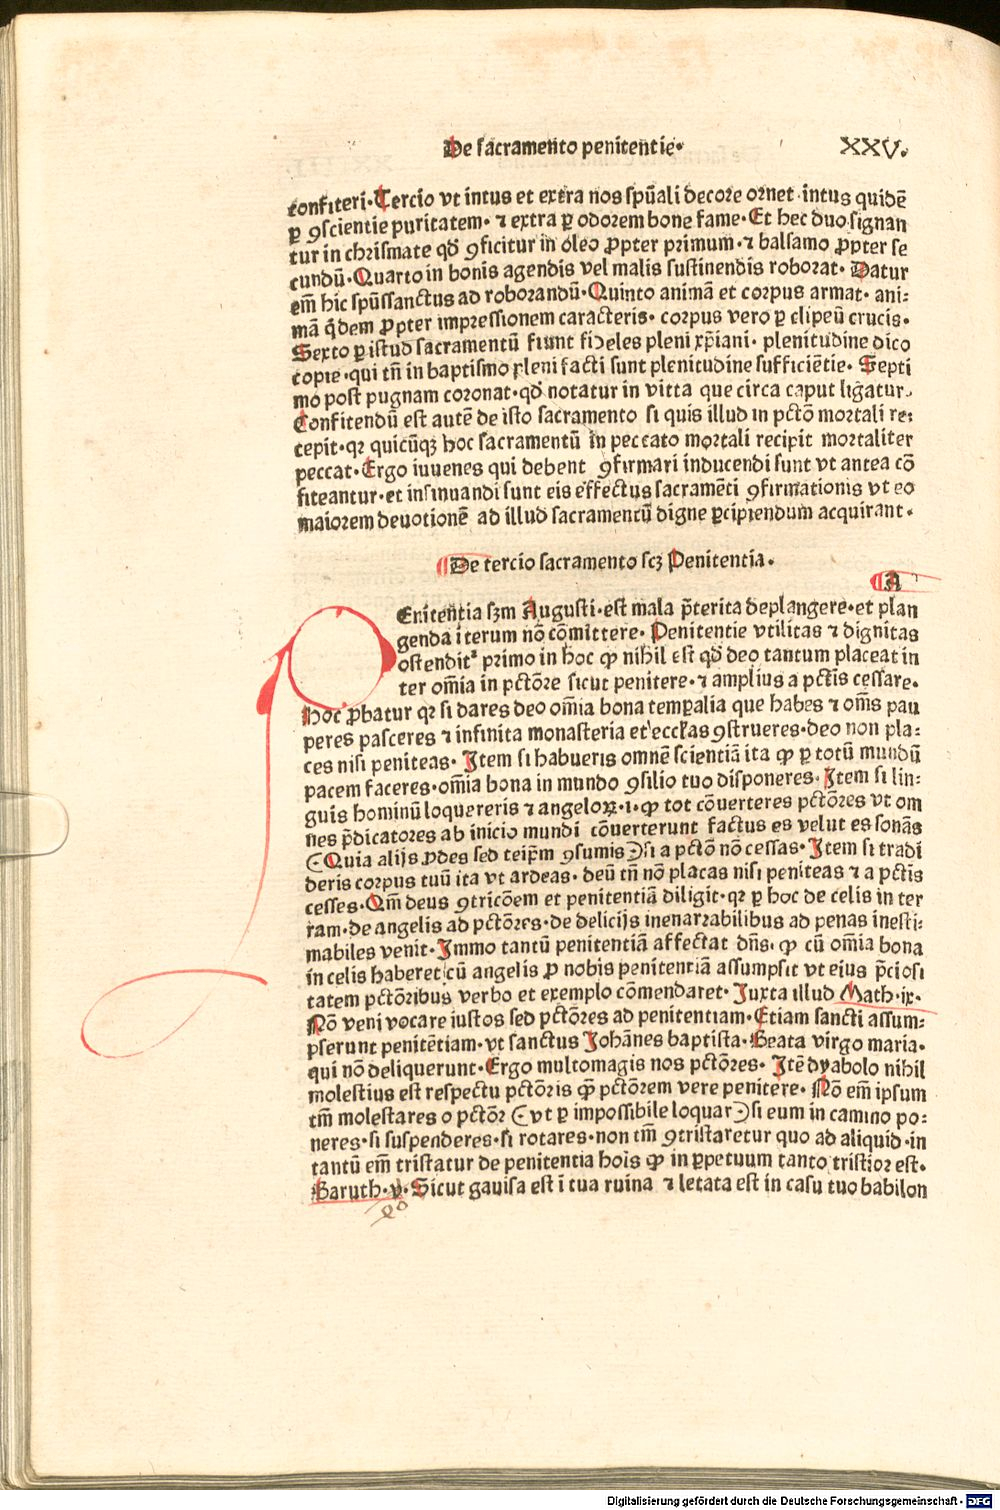 De sacramento penitentie.
XXV.
confiteri. Tercio vt intus et extra nos spũali decore ornet intus quidẽ
ꝑ ꝯscientie puritatem. ⁊ extra ꝑ odorem bone fame. Et hec duo signan
tur in chrismate qđ ꝯficitur in oleo ꝓpter primum. ⁊ balsamo ꝓpter se
cundũ. Quarto in bonis agendis vel malis sustinendis roborat. Datur
em̃ hic spũssanctus ad roborandũ. Quinto animã et corpus armat. ani⸗
mã q̃dem ꝓpter impressionem caracteris. corpus vero ꝑ clipeũ crucis.
Sexto ꝑ istud sacramentũ fiunt fideles pleni xp̃iani. plenitudine dico
copie. qui tñ in baptismo pleni facti sunt plenitudine sufficiẽtie. Septi
mo post pugnam coronat. qđ notatur in vitta que circa caput ligatur.
Confitendũ est autẽ de isto sacramento si quis illud in pctõ mortali re⸗
cepit. qr quicũqꝫ hoc sacramentũ in peccato mortali recipit mortaliter
peccat. Ergo iuuenes qui debent ꝯfirmari inducendi sunt vt antea cõ
fiteantur. et insinuandi sunt eis effectus sacramẽti ꝯfirmationis vt eo
maiorem deuotionẽ ad illud sacramentũ digne ꝑcipiendum acquirant.
De tercio sacramento scꝫ Penitentia.
A
Enitentia sꝫm Augusti. est mala p̃terita deplangere. et plan
genda iterum nõ cõmittere. Penitentie vtilitas ⁊ dignitas
ostendit² primo in hoc ꝙ nihil est qđ deo tantum placeat in
ter om̃ia in pctõre sicut penitere. ⁊ amplius a pctĩs cessare.
Hoc ꝓbatur qr si dares deo om̃ia bona temꝑalia que habes ⁊ om̃s pau
peres pasceres ⁊ infinita monasteria et eccl̃as ꝯstrueres. deo non pla⸗
ces nisi peniteas. Item si habueris omnẽ scientiã ita ꝙ ꝑ totũ mundũ
pacem faceres. om̃ia bona in mundo ꝯsilio tuo disponeres. Item si lin⸗
guis hominũ loquereris ⁊ angeloꝝ. i. ꝙ tot cõuerteres pctõres vt om
nes p̃dicatores ab inicio mundi cõuerterunt factus es velut es sonãs
(Quia alijs ꝓdes sed teip̃m ꝯsumis) si a pctõ nõ cessas. Item si tradi
deris corpus tuũ ita vt ardeas. deũ tñ nõ placas nisi peniteas ⁊ a pctĩs
cesses. Qm̃ deus ꝯtricõem et penitentiã diligit. qr ꝑ hoc de celis in ter
ram. de angelis ad pctõres. de delicijs inenarrabilibus ad penas inesti⸗
mabiles venit. Immo tantũ penitentiã affectat dñs. ꝙ cũ om̃ia bona
in celis haberet cũ angelis ꝓ nobis penitentiã assumpsit vt eius p̃ciosi
tatem pctõribus verbo et exemplo cõmendaret. Iuxta illud Math. ix.
Nõ veni vocare iustos sed pctõres ad penitentiam. Etiam sancti assum⸗
pserunt penitẽtiam. vt sanctus Johãnes baptista. Beata virgo maria.
qui nõ deliquerunt. Ergo multomagis nos pctõres. Itẽ dyabolo nihil
molestius est respectu pctõris ꝙ̃ pctõrem vere penitere. Nõ em̃ ipsum
tm̃ molestares o pctõr (vt ꝑ impossibile loquar) si eum in camino po⸗
neres. si suspenderes. si rotares. non tm̃ ꝯtristaretur quo ad aliquid. in
tantũ em̃ tristatur de penitentia hoĩs ꝙ in ꝑpetuum tanto tristior est.
Baruth. v. Sicut gauisa est ĩ tua ruina ⁊ letata est in casu tuo babilon
Digitalisierung gefördert durch die Deutsche Forschungsgemeinschaft - DFG